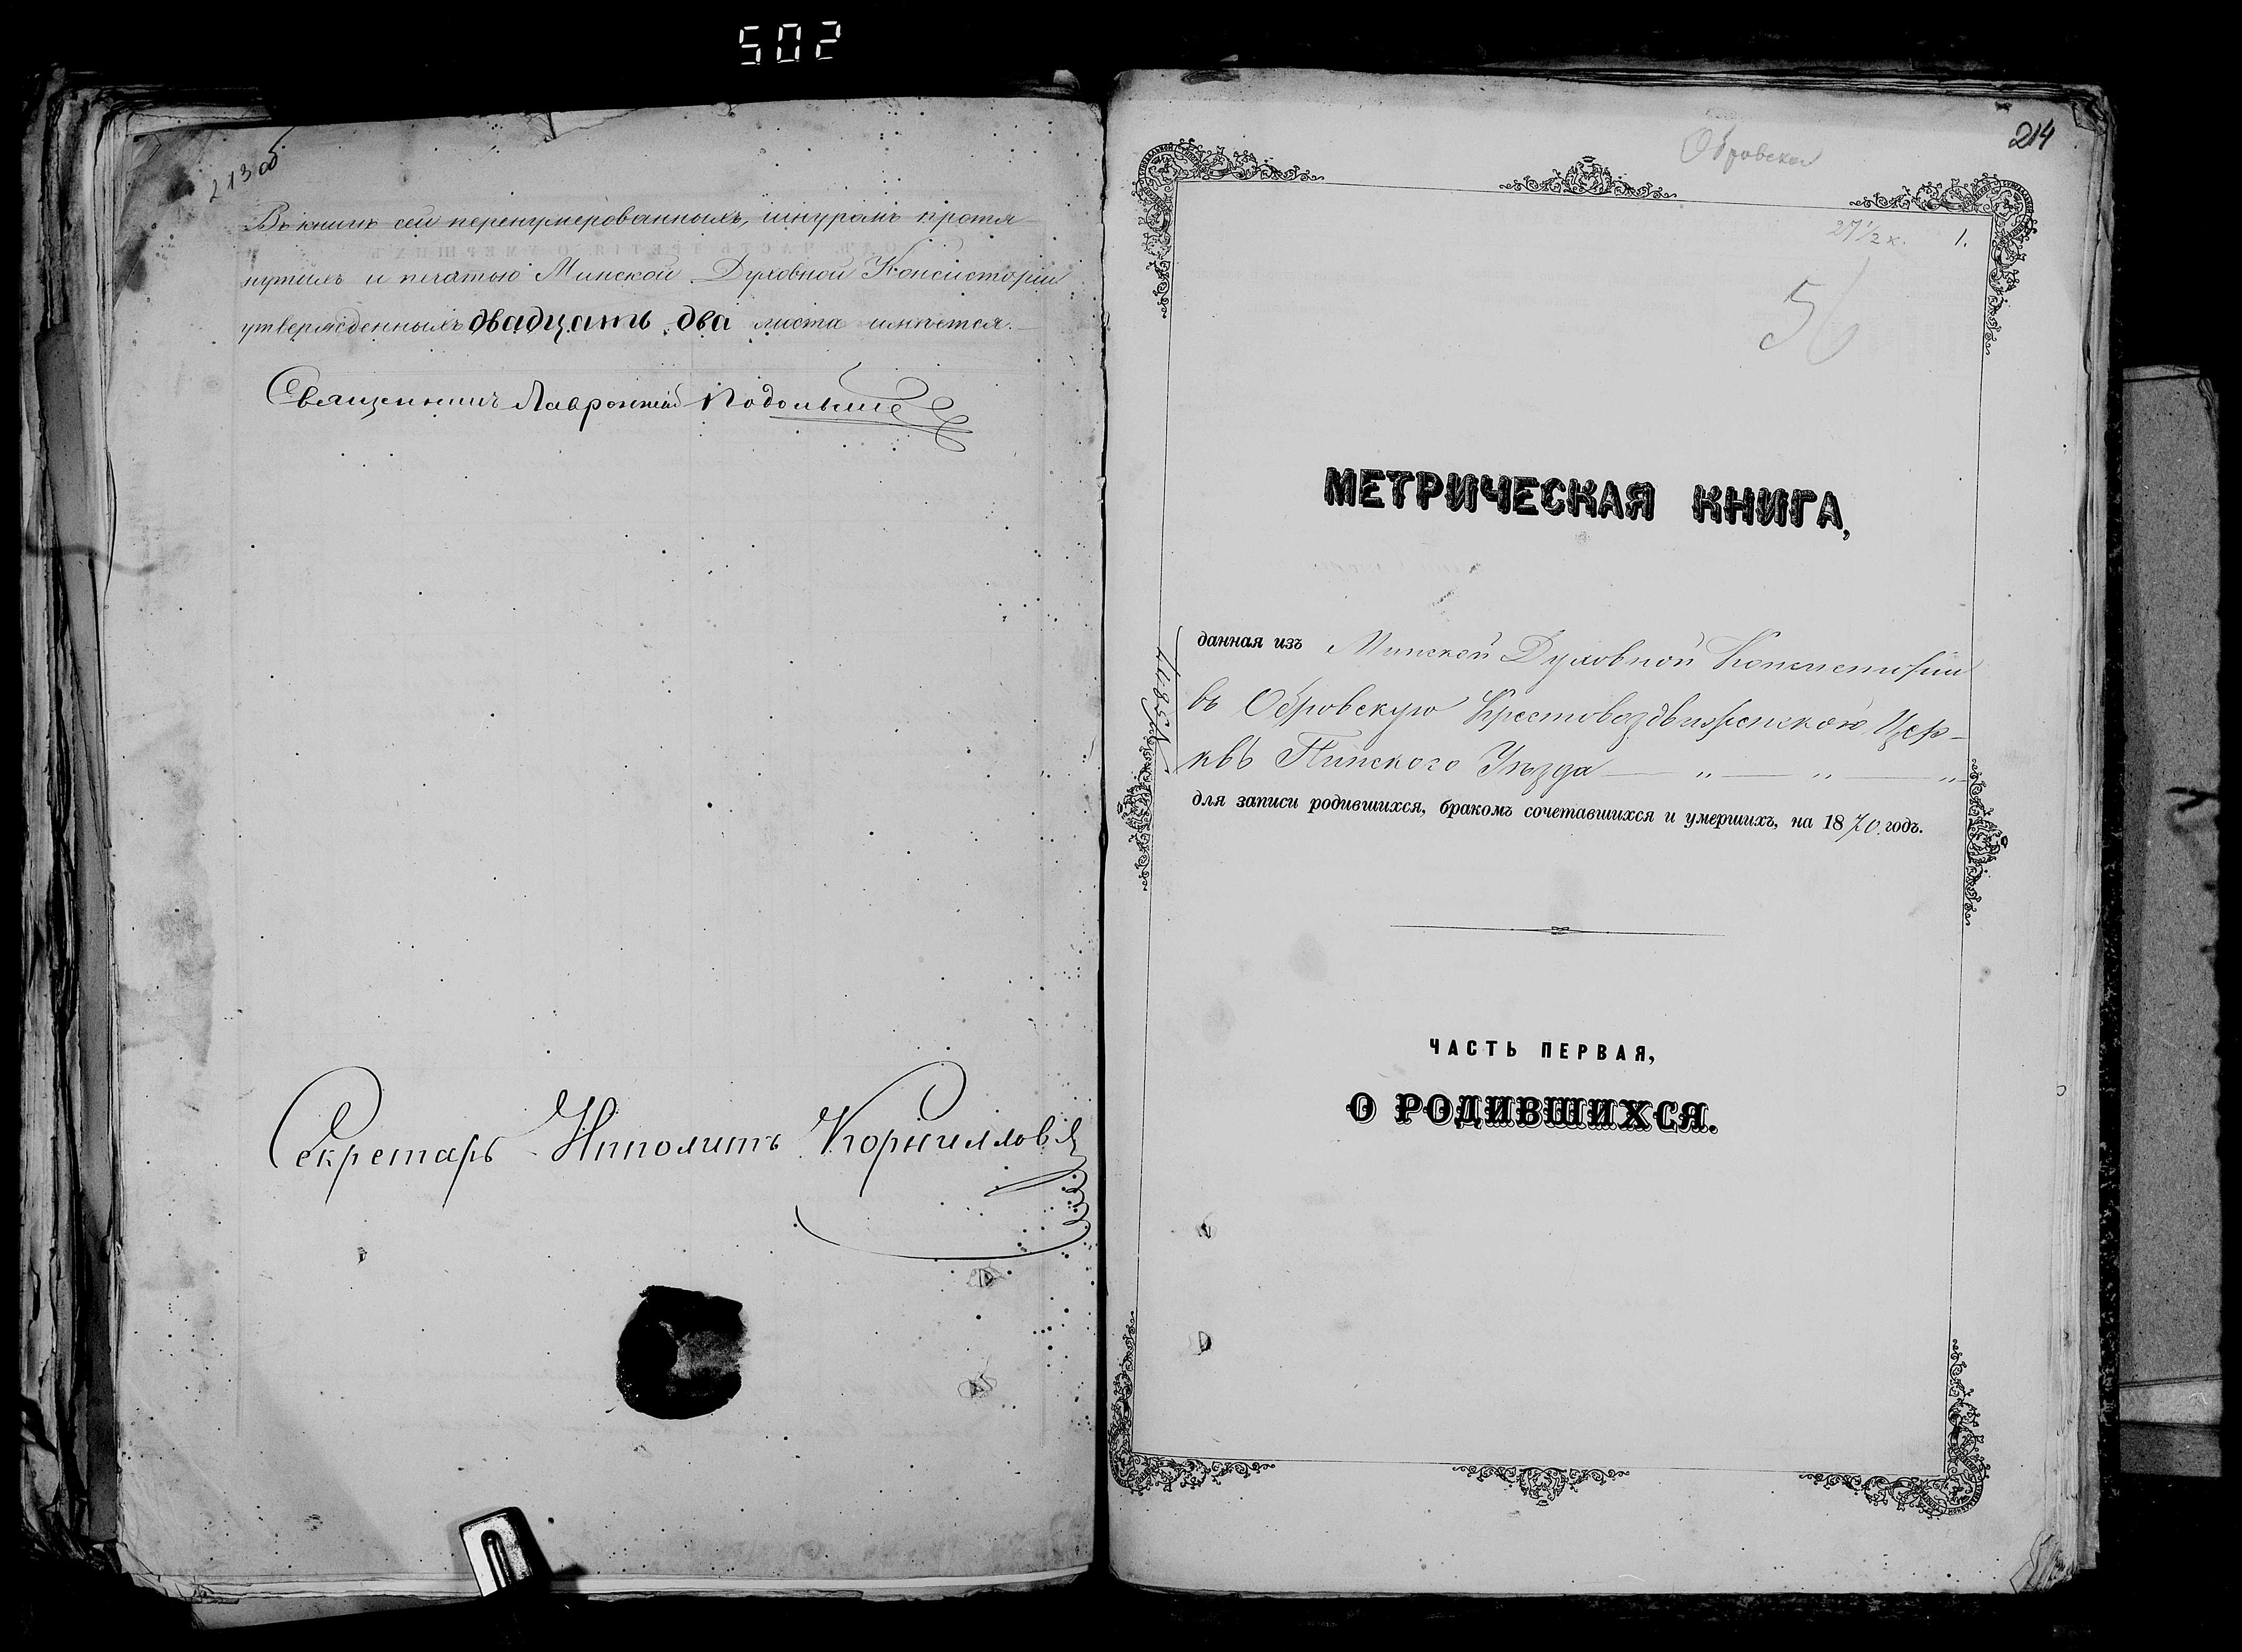 502
213 об
Въ книгѣ сей перенумерованныхъ, шнуромъ протя
нутыхъ и печатью Минской Духовной Консисторіи
утвержденныхъ двадцать два листа имѣется.
Священникъ Лаврентій
Секретарь Ипполитъ
214
Обровская
27 1/2 к. 1.
56
МЕТРИЧЕСКАЯ КНИГА,
данная изъ Минской Духовной Консисторіи
въ Обровскую Крестовоздвиженскою Цер-
квь Пинского Уѣзда — „ — „ — „
для записи родившихся, бракомъ сочетавшихся и умершихъ, на 1870 годъ.
ЧАСТЬ ПЕРВАЯ,
О РОДИВШИХСЯ.